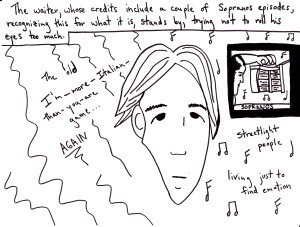 The waiter, whose credits include a couple of Sopranos episodes,
recognizing this for what it is, stands by, trying not to roll his
eyes too much.
The old
I'm-more-Italian-
than-you-are
game...
AGAIN
SOPRANOS
streetlight
people
living just to
find emotion